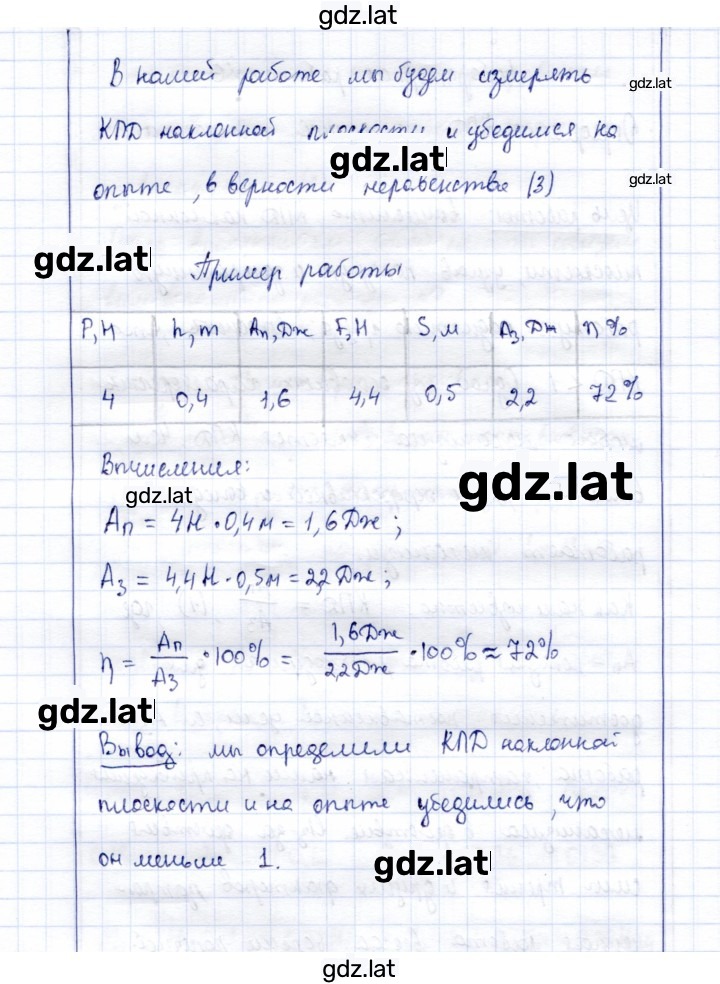 gdz.lat
В нашей работе мы будем измерять
gdz.lat
КПД наклонной плоскости и убедимся на
gdz.lat
опыте, в верности неравенства (3)
gdz.lat
gdz.lat
Пример работы
P, Н h, m Aп, Дж F, Н S, м Aз, Дж η %
4 0,4 1,6 4,4 0,5 2,2 72%
Вычисления:
gdz.lat
gdz.lat
Aп = 4Н · 0,4м = 1,6 Дж;
Aз = 4,4Н · 0,5м = 2,2 Дж;
η = Aп/Aз · 100% = 1,6Дж/2,2Дж · 100% ≈ 72%
gdz.lat
Вывод: мы определили КПД наклонной
плоскости и на опыте убедились, что
он меньше 1.
gdz.lat
gdz.lat